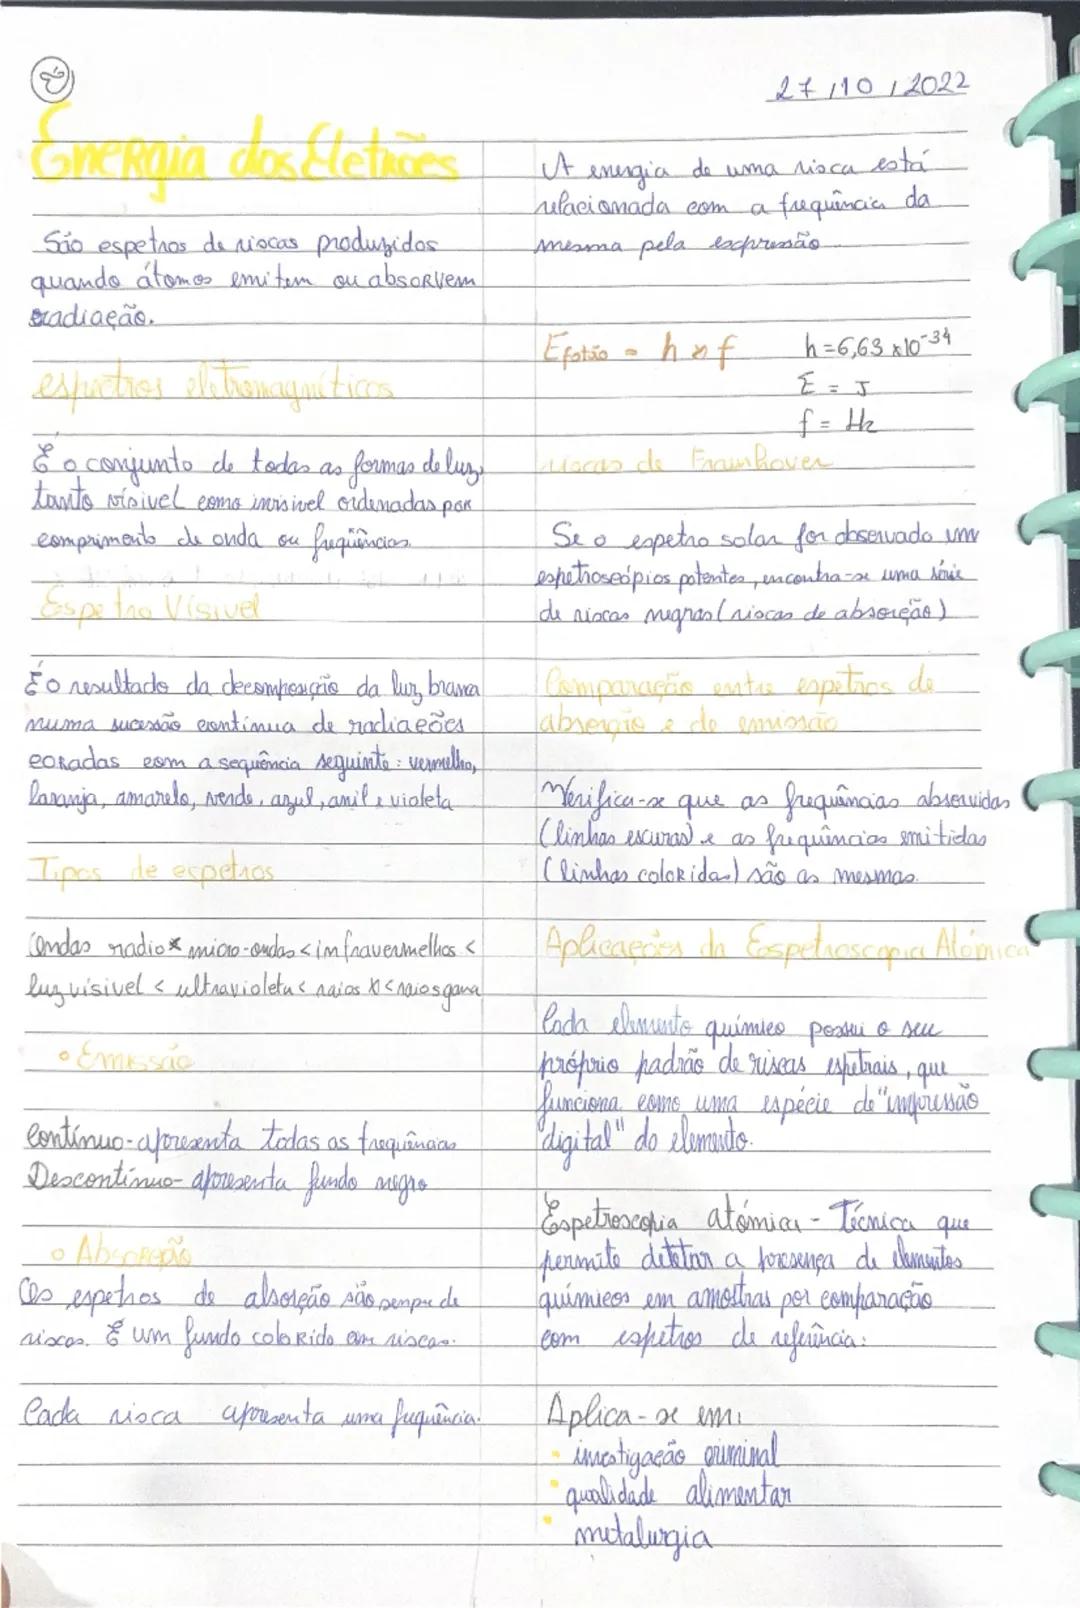 27/10/2022
Energia dos Eletrões
São espetros de riscas produzidos
quando átomos emitem ou absorvem
radiação.
espectros eletromagnéticos
É o conjunto de todas as formas de luz,
tanto visível como invisivel ordenadas por
comprimento de onda ou frequências.
Espetro Vísivel
É o resultado da decomposição da luz branca
numa sucessão contínua de radiações
coradas com a sequência seguinte: vermelho,
laranja, amarelo, verde, azul, anil e violeta
Tipos de espetros
Ondas radio < micro-ondas < infravermelhos <
luz visivel < ultravioleta < raios X < raios gama
• Emissão
Contínuo - apresenta todas as frequências
Descontínuo - apresenta fundo negro
• Absorção
Os espetros de absorção são sempre de
riscas. É um fundo colorido com riscas.
Cada risca apresenta uma frequência.
A energia de uma risca está
relacionada com a frequência da
mesma pela expressão
Efotão = h x f h = 6,63 x 10^-34
E = J
f = Hz
riscas de Fraunhover
Se o espetro solar for observado um
espetroscópios potentes, encontra-se uma série
de riscas negras (riscas de absorção)
Comparação entre espetros de
absorção e de emissão
Verifica-se que as frequências absorvidas
(linhas escuras) e as frequências emitidas
(linhas coloridas) são as mesmas.
Aplicações da Espetroscopia Atómica
Cada elemento químico possui o seu
próprio padrão de riscas espetrais, que
funciona como uma espécie de "impressão
digital" do elemento.
Espetroscopia atómica - Técnica que
permite detetar a presença de elementos
químicos em amostras por comparação
com espetros de referência.
Aplica-se em:
• investigação criminal
• qualidade alimentar
• metalurgia